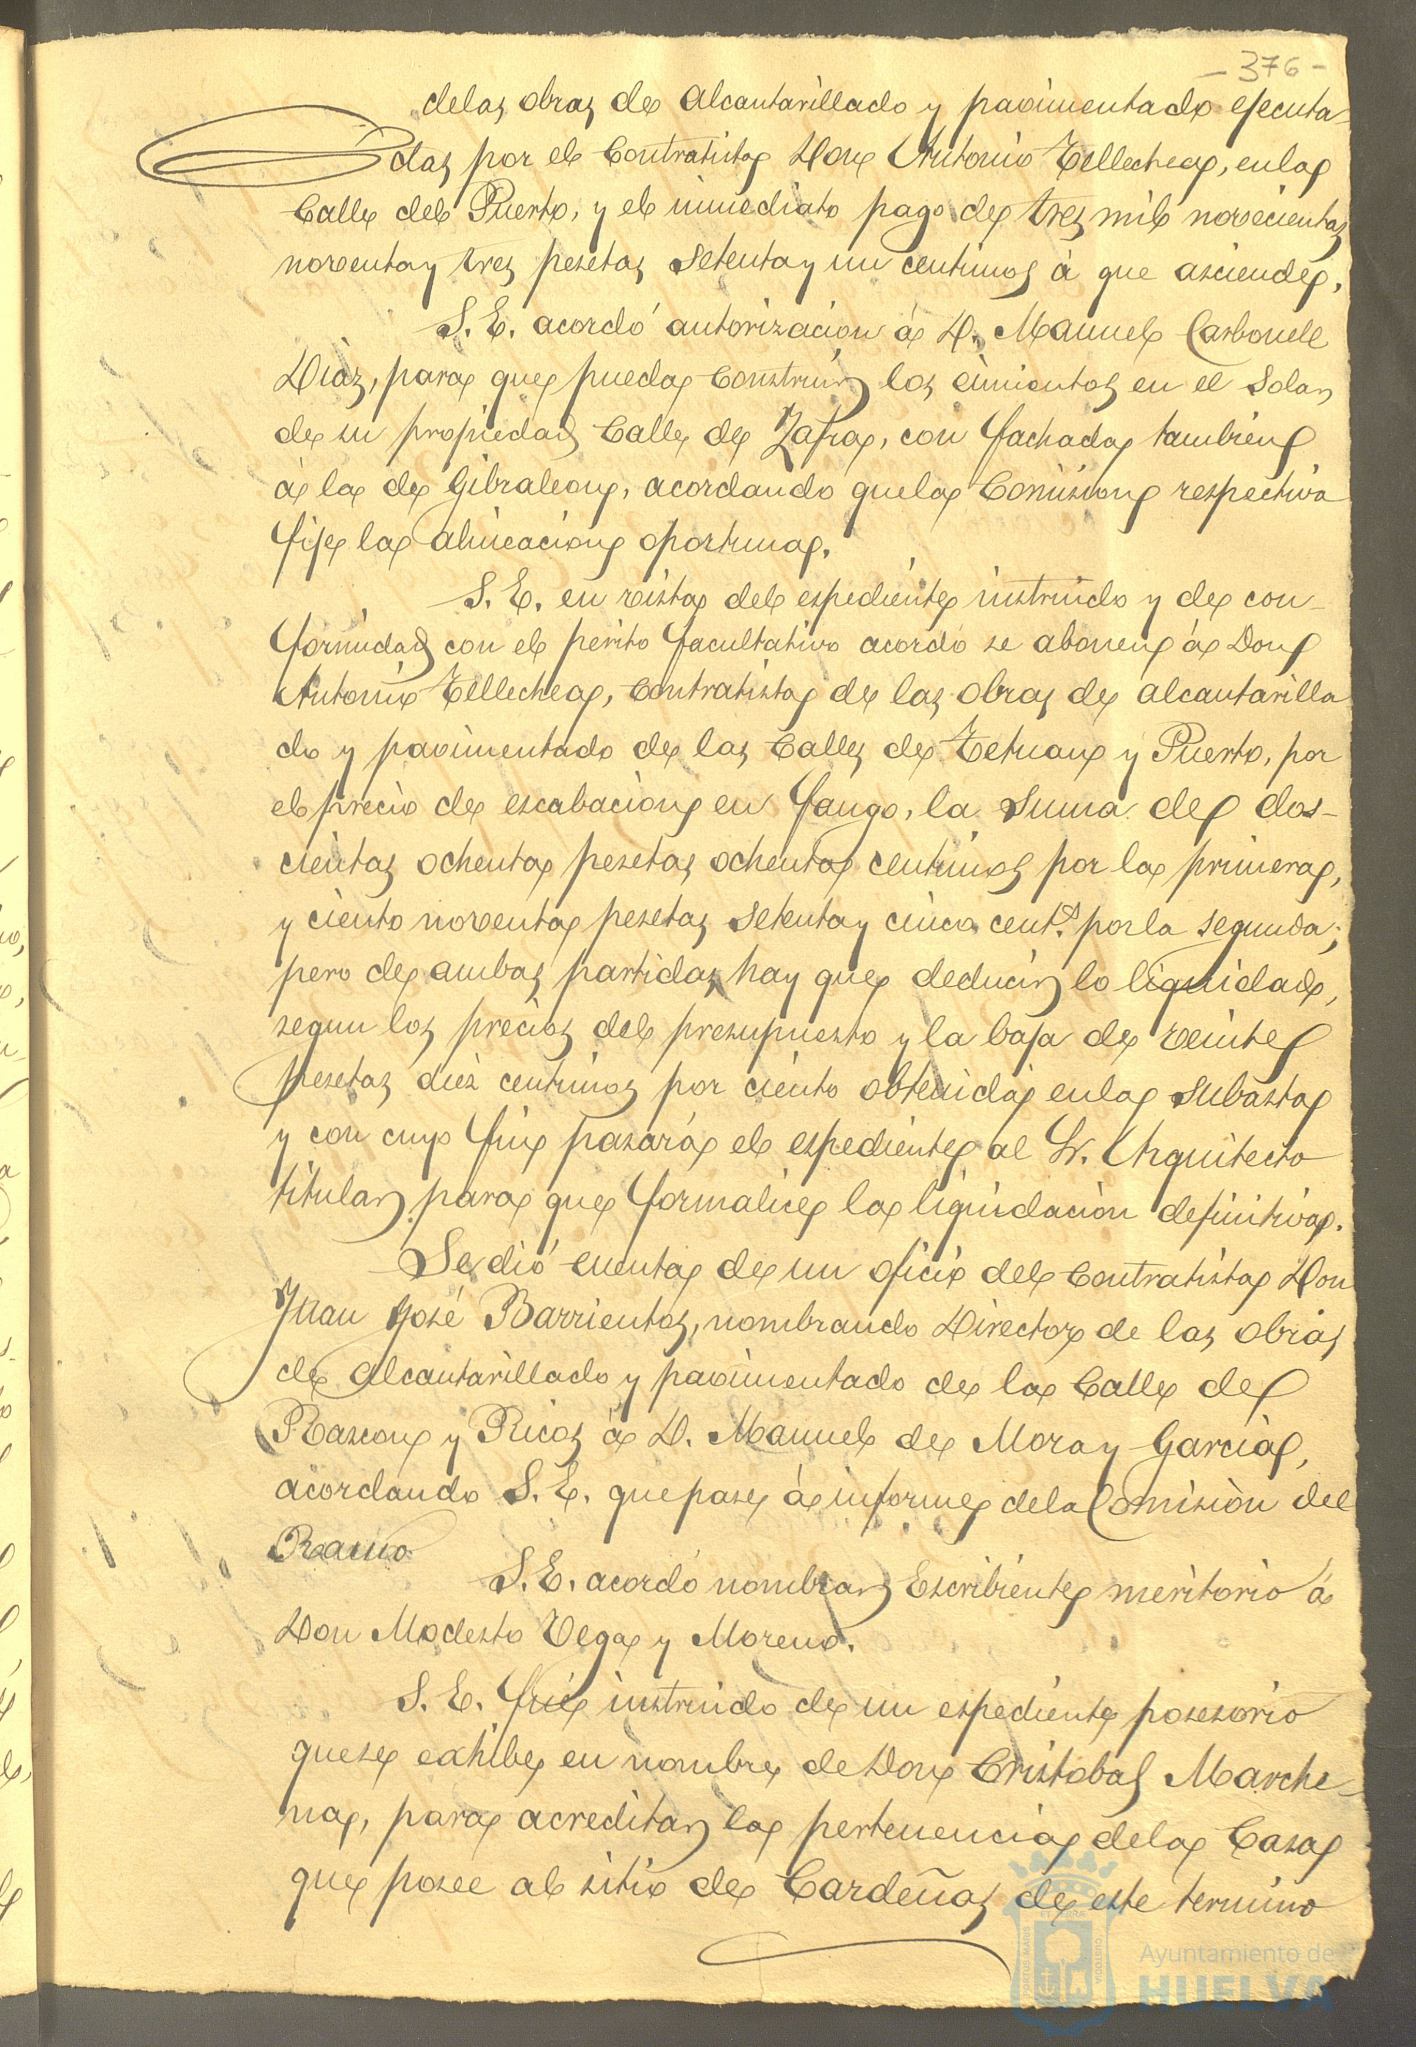 - 376 -
de las obras de alcantarillado y pavimentado ejecuta-
das por el Contratista Don Antonio Tellechea, en la
Calle del Puerto, y el inmediato pago de tres mil novecientas
noventa y tres pesetas setenta y un centimos á que asciende.
S. E. acordó autorizacion á D. Manuel Carbonell
Diaz, para que pueda construir los cimientos en el solar
de su propiedad Calle de Zafra, con fachada tambien
á la de Gibraleon, acordando que la Comision respectiva
fije la alineacion oportuna.
S. E. en vista del espediente instruido y de con-
formidad con el perito facultativo acordó se abonen á Don
Antonio Tellechea, Contratista de las obras de alcantarilla
do y pavimentado de las Calles de Tetuan y Puerto, por
el precio de escabacion en fango, la suma de dos-
cientas ochenta pesetas ochenta centimos por la primera,
y ciento noventa pesetas setenta y cinco cents. por la segunda;
pero de ambas partidas hay que deducir lo liquidado,
segun los precios del presupuesto y la baja de veinte
pesetas diez centimos por ciento obtenida en la subasta
y con cuyo fin pasará el espediente al Sr. Arquitecto
titular para que formalice la liquidación definitiva.
Se dió cuenta de un oficio del Contratista Don
Juan José Barrientos, nombrando Director de las obras
de alcantarillado y pavimentado de la Calle de
Rascon y Ricos á D. Manuel de Mora y Garcia,
acordando S. E. que pase á informe de la Comisiòn del
Ramo
S. E. acordó nombrar Escribiente meritorio á
Don Modesto Vega y Moreno.
S. E. fué instruido de un espediente posesorio
que se exhibe en nombre de Don Cristobal Marche-
na, para acreditar la pertenencia de la Casa
que posee al sitio de Cardeñas de este termino
Ayuntamiento de
HUELVA